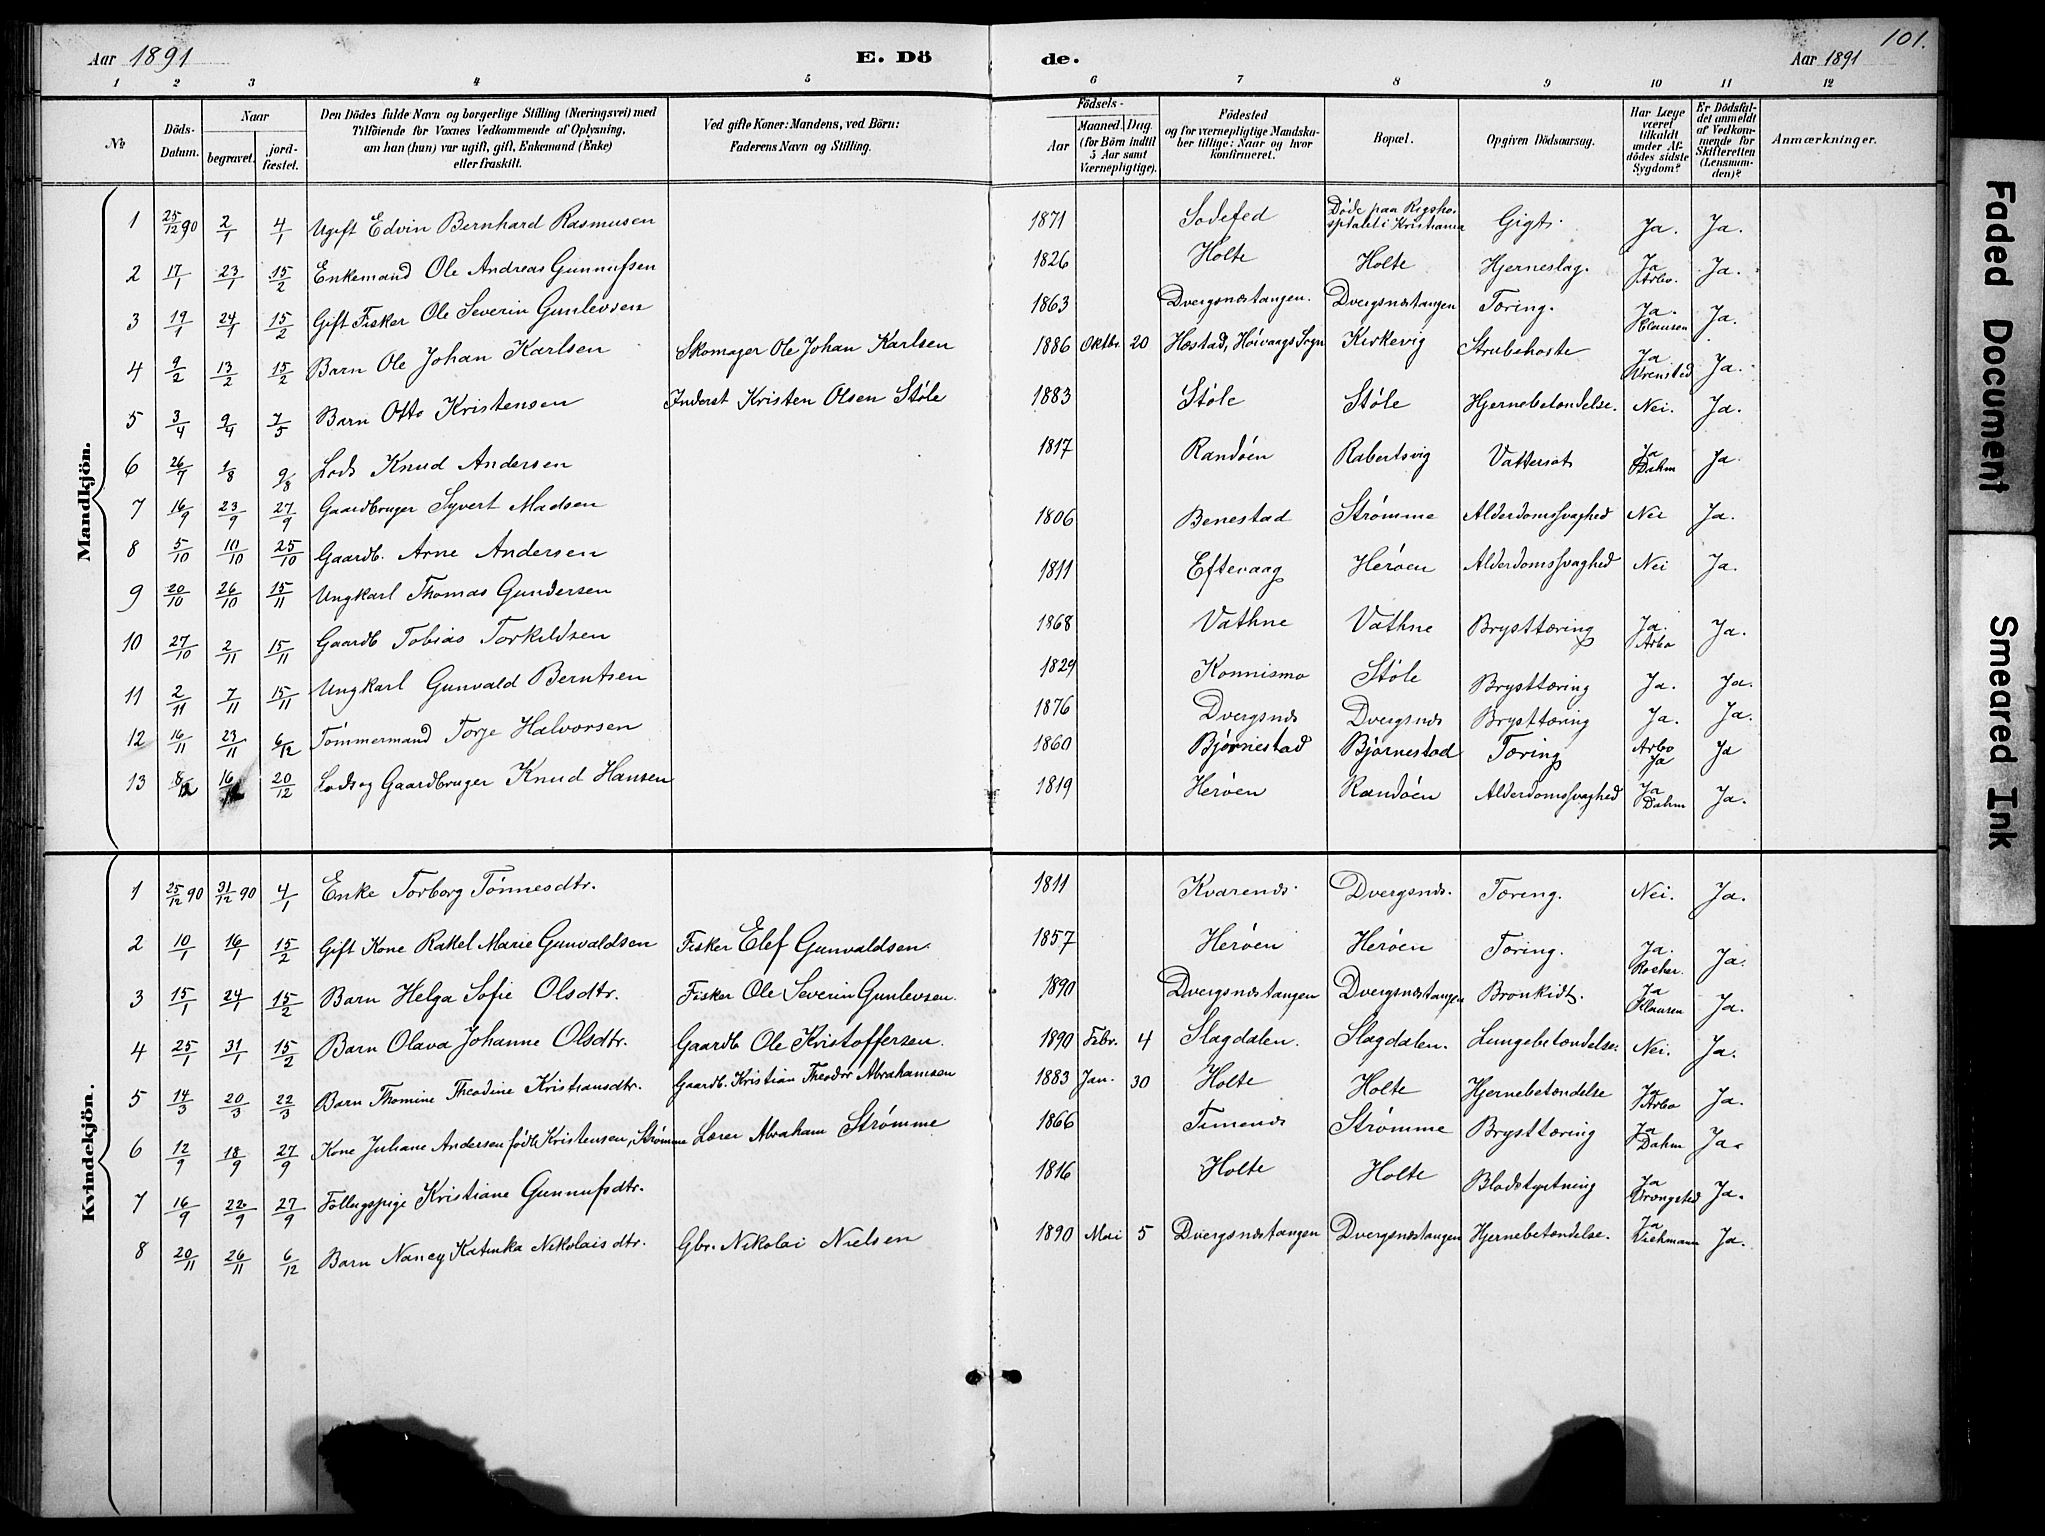 Aar 1891 E. Dö de. Aar 1891 101.
1 2 3 4 5 6 7 8 9 10 11 12
№ Döds-Datum. Naar begravet. jord-fæstet. Den Dödes fulde Navn og borgerlige Stilling (Næringsvei) med Tilföiende for Voxnes Vedkommende af Oplysning, om han (hun) var ugift, gift, Enkemand (Enke) eller fraskilt. Ved gifte Koner: Mandens, ved Börn: Faderens Navn og Stilling. Födsels- Aar Maaned. Dag. (for Börn indtil 5 Aar samt Værnepligtige). Födested og for værnepligtige Mandskaber tillige: Naar og hvor konfirmeret. Bopæl. Opgiven Dödsaarsag. Har Læge været tilkaldt under Afdödes sidste Sygdom? Er Dödsfaldet anmeldt af Vedkommende for Skifteretten (Lensmanden)? Anmærkninger.
Mandkjön.
1 25/12 90 2/1 4/1 Ugift Edvin Bernhard Rasmusen 1871 Sodefed Døde paa Rigshospitalet i Kristiania Gigt. Ja. Ja.
2 17/1 23/1 15/2 Enkemand Ole Andreas Gunnufsen 1826 Holte Holte Hjerneslag. Ja Arbo. Ja.
3 19/1 24/1 15/2 Gift Fisker Ole Severin Gunlevsen 1863 Dvergsnæstangen. Dvergsnæstangen Tæring. Ja. Klausen Ja.
4 9/2 13/2 15/2 Barn Ole Johan Karlsen Skomager Ole Johan Karlsen 1886 Oktbr. 20 Hæstad, Høivaags Sogn Kirkevig Strubehoste Ja Ja.
5 3/4 9/4 7/5 Barn Otto Kristensen Inderst Kristen Olsen Støle 1883 Støle Støle Hjernebetændelse. Nei. Ja.
6 26/7 1/8 9/8 Lods Knud Andersen 1817 Randøen Rabertsvig Vattersot Ja Dahm Ja.
7 16/9 23/9 27/9 Gaardbruger Syvert Madsen 1806 Benestad Strømme Alderdomssvaghed Nei Ja.
8 5/10 10/10 25/10 Gaardb. Arne Andersen 1811 Eftevaag Herøen Alderdomssvaghed Nei Ja.
9 20/10 26/10 15/11 Ungkarl Thomas Gundersen 1868 Vathne Vathne Brysttæring Ja. Arbo Ja.
10 27/10 2/11 15/11 Gaardb Tobias Torkildsen 1829 Konnismo Støle Brysttæring Ja. Ja.
11 2/11 7/11 15/11 Ungkarl Gunvald Berntsen 1876 Dvergsnæs Dvergsnæs Brysttæring Ja. Ja.
12 16/11 23/11 6/12 Tømmermand Torje Halvorsen 1860 Bjørnestad Bjørnestad Tæring Arbo Ja Ja
13 8/12 16/12 20/12 Lods og Gaardbruger Knud Hansen 1819 Herøen Randøen Alderdomssvaghed Ja Dahm Ja.
Kvindekjön.
1 25/12 90 31/12 90 4/1 Enke Torborg Tønnesdtr. 1811 Kvarenæs. Dvergsnæs. Tæring. Nei. Ja.
2 10/1 16/1 15/2 Gift Kone Rakel Marie Gunvaldsen Fisker Elef Gunvaldsen. 1857 Herøen Herøen Tæring. Ja. Rocher. Ja.
3 15/1 24/1 15/2 Barn Helga Sofie Olsdtr. Fisker Ole Severin Gunlevsen. 1890 Dvergsnæstangen Dvergsnæstangen Bronkidt. Ja Klausen Ja.
4 25/1 31/1 15/2 Barn Olava Johanne Olsdtr. Gaardb Ole Kristoffersen. 1890 Febr. 4 Slagdalen. Slagdalen. Lungebetændelse. Nei. Ja.
5 14/3 20/3 22/3 Barn Thomine Theodine Kristiansdtr. Gaardb. Kristian Theodor Abrahamsen 1883 Jan. 30 Holte Holte Hjernebetændelse Ja Arbo Ja.
6 12/9 18/9 27/9 Kone Juliane Andersen født Kristensen, Strømme Lærer Abraham Strømme 1866 Timenæs Strømme Brysttæring Ja Dahm Ja.
7 16/9 22/9 27/9 Føllugspige Kristiane Gunnufsdtr. 1816 Holte Holte Blodstyrtning Ja Ja.
8 20/11 26/11 6/12 Barn Nancy Katinka Nikolaisdtr. Gbr. Nikolai Nielsen 1890 Mai 5 Dvergsnæstangen Dvergsnæstangen Hjernebetændelse. Ja Ja.
Faded Document
Smeared Ink